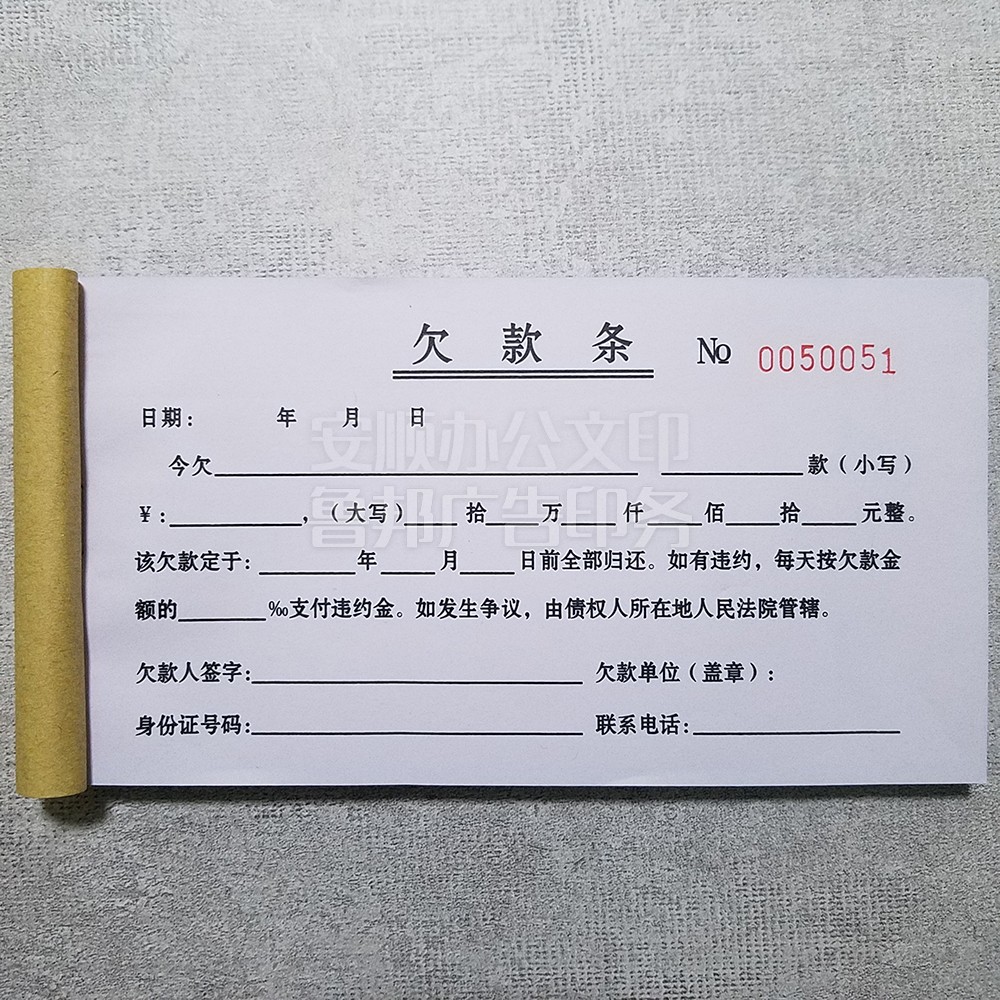 欠款条 № 0050051
日期： 年 月 日
安顺办公文印
今欠____ ____款（小写）
鲁邦广告印务
￥：____，（大写）____拾____万____仟____佰____拾____元整。
该欠款定于：____年____月____日前全部归还。如有违约，每天按欠款金
额的____‰支付违约金。如发生争议，由债权人所在地人民法院管辖。
欠款人签字：____ 欠款单位（盖章）：
身份证号码：____ 联系电话：____